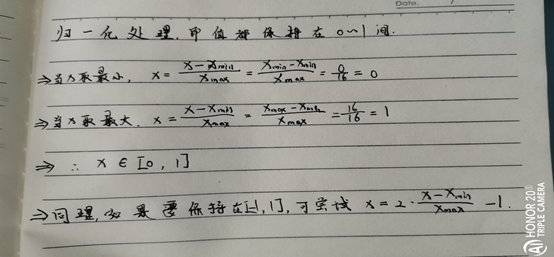 Date.
归一化处理,即值都保持在0~1间.
⇒当x取最小, x = (x-xmin)/xmax = (xmin-xmin)/xmax = 0/16 = 0
⇒当x取最大, x = (x-xmin)/xmax = (xmax-xmin)/xmax = 16/16 = 1
⇒ ∴ x ∈ [0, 1]
⇒同理,如果要保持在[-1, 1],可尝试 x = 2·(x-xmin)/xmax -1.
HONOR 20
TRIPLE CAMERA
AI